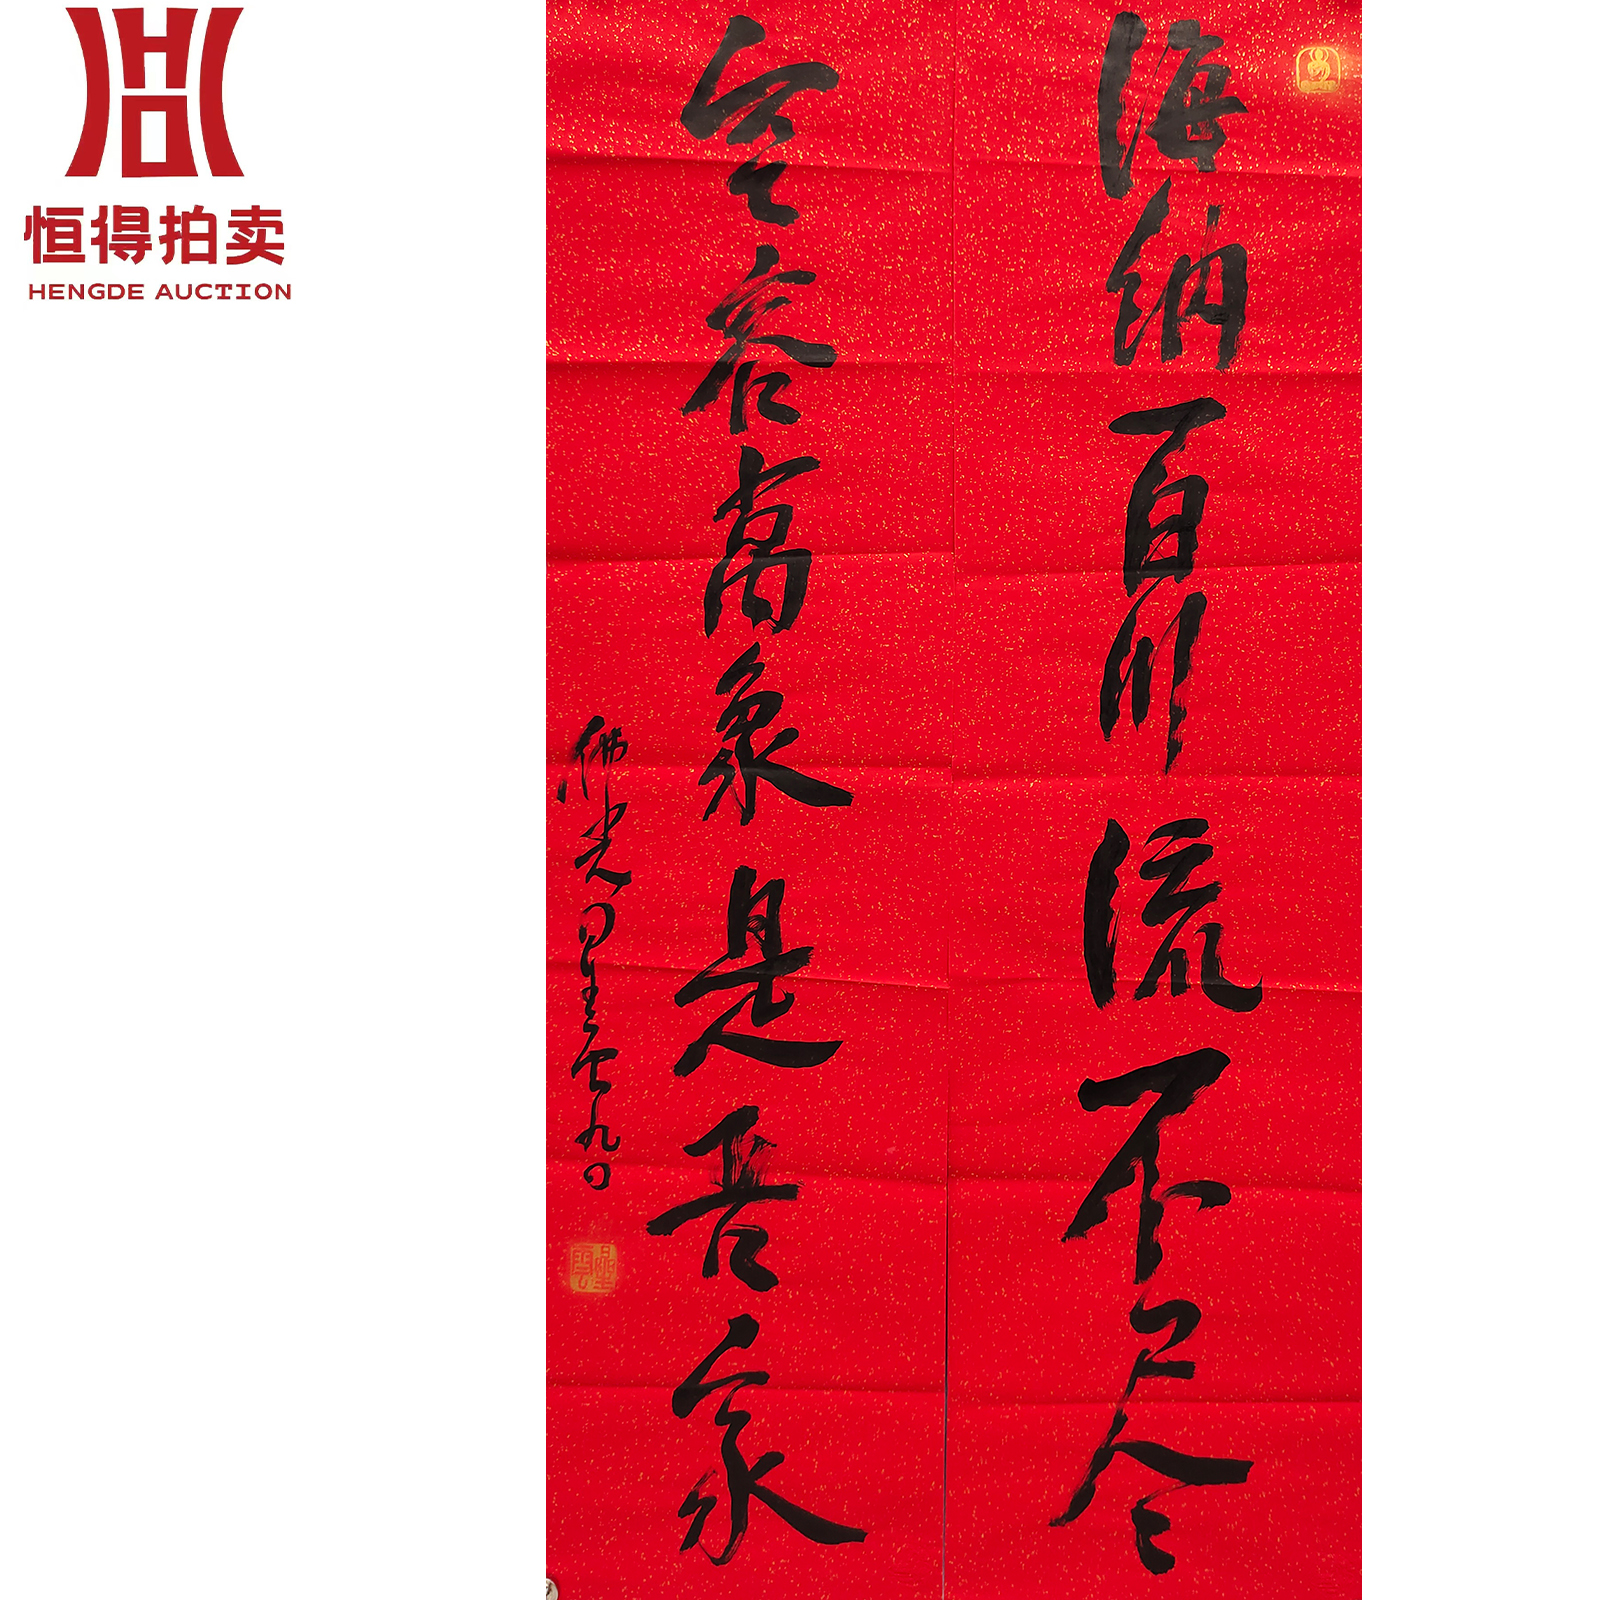 恒得拍卖
HENGDE AUCTION
海纳百川流不尽
空容万象是吾家
佛光星云九〇
星雲